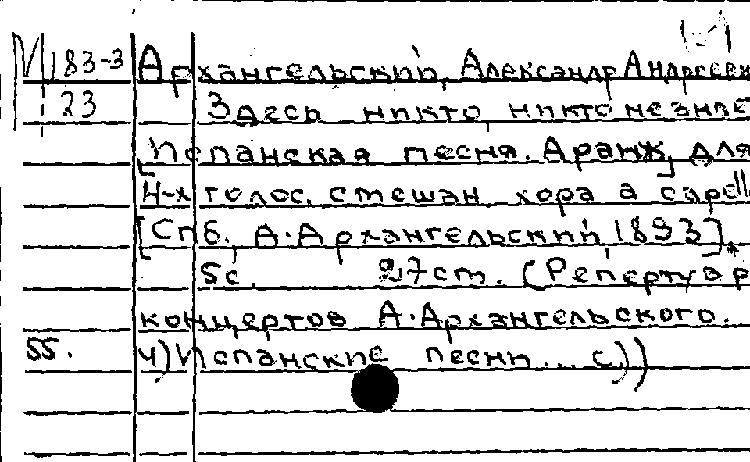 М 183-3 Архангельский, Александр Андреевич
23 Здесь никто, никто не знае
[Испанская песня. Аранж] для
4-х голос. смешан хора a capell
[Спб., А. Архангельский, 1893].
5с. 27cm. (Репертуар
концертов А. Архангельского.
55. ч) Испанские песни... с))